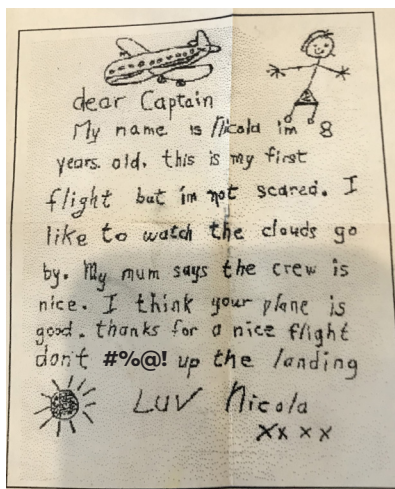 dear Captain
My name is Nicola im 8
years old. this is my first
flight but im not scared. I
like to watch the clouds go
by. My mum says the crew is
nice. I think your plane is
good. thanks for a nice flight
don't #%@! up the landing
Luv Nicola
xx xx